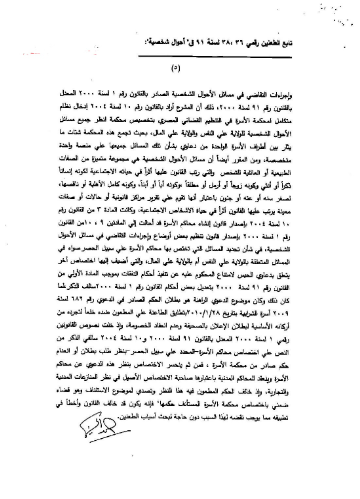 تابع الطعنين رقمي ٣٦ ، ٣٨ لسنة ٩١ ق "أحوال شخصية":
(٥)
وإجراءات التقاضي في مسائل الأحوال الشخصية الصادر بالقانون رقم ١ لسنة ٢٠٠٠ المعدل
بالقانون رقم ٩١ لسنة ٢٠٠٠، ذلك أن المشرع أراد بالقانون رقم ١٠ لسنة ٢٠٠٤ إدخال نظام
متكامل لمحكمة الأسرة في التنظيم القضائي المصري بتخصيص محكمة لنظر جميع مسائل
الأحوال الشخصية للولاية علي النفس والولاية علي المال، بحيث تجمع هذه المحكمة شتات ما
يثور بين أطراف الأسرة الواحدة من دعاوي بشأن تلك المسائل جميعها علي منصة واحد
متخصصة، ومن المقرر أيضاً أن مسائل الأحوال الشخصية هي مجموعة متميزة من الصفات
الطبيعية أو العائلية للشخص والتي رتب القانون عليها أثراً في حياته الاجتماعية لكونه إنساناً
ذكراً أو أنثي وكونه زوجاً أو أرمل أو مطلقاً وكونه أباً أو أبناً، وكونه كامل الأهلية أو ناقصها،
لصغر سنه أو عته أو جنون باعتبار أنها تقوم علي تقرير مراكز قانونية أو حالات أو صفات
معينة يرتب عليها القانون أثراً في حياة الأشخاص الاجتماعية، وكانت المادة ٣ من القانون رقم
١٠ لسنة ٢٠٠٤ بإصدار قانون إنشاء محاكم الأسرة قد أحالت إلي المادتين ٩، ١٠ من القانون
رقم ١ لسنة ٢٠٠٠ بإصدار قانون تنظيم بعض أوضاع وإجراءات التقاضي في مسائل الأحوال
الشخصية، في شأن تحديد المسائل التي تختص بها محاكم الأسرة علي سبيل الحصر سواء في
المسائل المتعلقة بالولاية علي النفس أم بالولاية علي المال، والتي أضيف إليها اختصاص آخر
يتعلق بدعاوي الحبس لامتناع المحكوم عليه عن تنفيذ أحكام النفقات بموجب المادة الأولي من
القانون رقم ٩١ لسنة ٢٠٠٠ بتعديل بعض أحكام القانون رقم ١ لسنة ٢٠٠٠ سالف الذكر، لما
كان ذلك وكان موضوع الدعوي الراهنة هو بطلان الحكم الصادر في الدعوي رقم ٦٨٢ لسنة
٢٠٠٩ أسرة بتاريخ ٢٠١٠/١/٢٨ بتطليق الطاعنة علي المطعون ضده خلعاً لتجرده من
أركانه الأساسية لبطلان الإعلان بالصحيفة وعدم انعقاد الخصومة، وإذ خلت نصوص القانونين
رقمي ١ لسنة ٢٠٠٠ المعدل بالقانون ٩١ لسنة ٢٠٠٠ و ١٠ لسنة ٢٠٠٤ سالفي الذكر من
النص علي اختصاص محاكم الأسرة - المحدد علي سبيل الحصر - بنظر طلب بطلان أو انعدام
حكم صادر من محكمة الأسرة، فمن ثم ينحسر الاختصاص بنظر هذه الدعوي عن محاكم
الأسرة وينعقد للمحاكم المدنية باعتبارها صاحبة الاختصاص الأصيل في نظر المنازعات المدنية
والتجارية، وإذ خالف الحكم المطعون فيه هذا النظر وتصدي لموضوع الاستئناف وهو قضاء
ضمني باختصاص محكمة الأسرة المستأنف حكمها فإنه يكون قد خالف القانون وأخطأ في
تطبيقه مما يوجب نقضه لهذا السبب دون حاجة لبحث أسباب الطعنين.